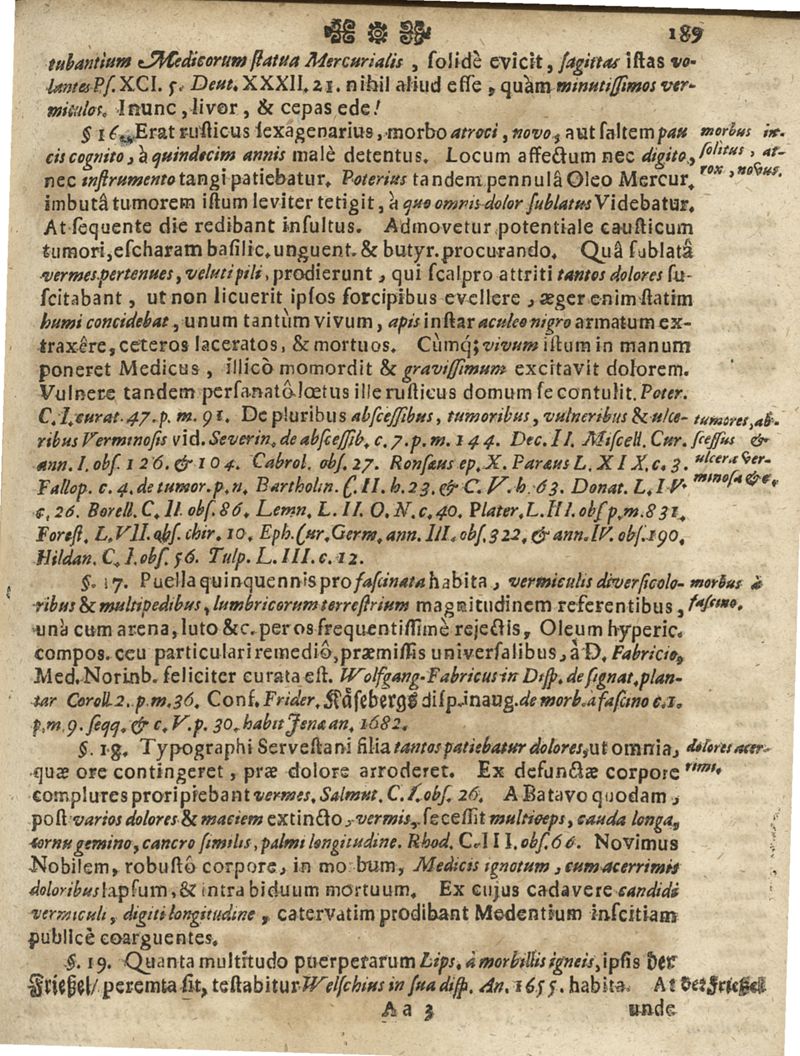 189
tubantium Medicorum ſtatua Mercurialis, ſolidè evicit, ſagittas iſtas vo-
lantes Pſ. XCI. 5. Deut. XXXII. 21. nihil aliud eſſe, quàm minutiſſimos ver-
miculos. I nunc, livor, & cepas ede!
§ 16. Erat ruſticus ſexagenarius, morbo atroci, novo, aut ſaltem pau
morbus in-
cis cognito, à quindecim annis malè detentus. Locum affectum nec digito,
ſolitus, at-
nec inſtrumento tangi patiebatur. Poterius tandem pennulâ Oleo Mercur.
rox, novus.
imbutâ tumorem iſtum leviter tetigit, à quo omnis dolor ſublatus Videbatur.
At ſequente die redibant inſultus. Admovetur potentiale cauſticum
tumori, eſcharam baſilic. unguent. & butyr. procurando. Quâ ſublatâ
vermes pertenues, veluti pili, prodierunt, qui ſcalpro attriti tantos dolores ſu-
ſcitabant, ut non licuerit ipſos forcipibus evellere, æger enim ſtatim
humi concidebat, unum tantùm vivum, apis inſtar aculeo nigro armatum ex-
traxêre, ceteros laceratos, & mortuos. Cùmq; vivum iſtum in manum
poneret Medicus, illicò momordit & graviſſimum excitavit dolorem.
Vulnere tandem perſanatô lœtus ille ruſticus domum ſe contulit. Poter.
C. I. curat. 47. p. m. 91. De pluribus abſceſſibus, tumoribus, vulneribus & ulce-
tumores, ab-
ribus Verminoſis vid. Severin. de abſceſſib. c. 7. p. m. 144. Dec. II. Miſcell. Cur.
ſceſſus &
ann. I. obſ. 126. & 104. Cabrol. obſ. 27. Ronſæus ep. X. Paræus L. XIX. c. 3.
ulcera ver-
Fallop. c. 4. de tumor. p. n. Bartholin. C. II. h. 23. & C. V. h. 63. Donat. L. IV.
minoſa &c.
c. 26. Borell. C. II. obſ. 86. Lemn. L. II. O. N. c. 40. Plater. L. III. obſ p. m. 831.
Foreſt. L. VII. obſ. chir. 10. Eph. Cur. Germ. ann. III. obſ. 322. & ann. IV. obſ. 190.
Hildan. C. I. obſ. 56. Tulp. L. III. c. 12.
§. 17. Puella quinquennis pro faſcinata habita, vermiculis diverſicolo-
morbus à
ribus & multipedibus, lumbricorum terreſtrium magnitudinem referentibus,
faſcino.
unà cum arena, luto &c. per os frequentiſſimè rejectis, Oleum hyperic.
compos. ceu particulari remediô, præmiſſis univerſalibus, â D. Fabricio,
Med. Norinb. feliciter curata eſt. Wolfgang. Fabricus in Diſp. de ſignat. plan-
tar Coroll. 2. p. m. 36. Conf. Frider. Käſebergs diſp. inaug. de morb. a faſcino c. 1.
p. m. 9. ſeqq. & c. V. p. 30. habit Jenæ an. 1682.
§. 18. Typographi Serveſtani filia tantos patiebatur dolores, ut omnia,
dolores acer-
quæ ore contingeret, præ dolore arroderet. Ex defunctæ corpore
rimi.
complures proripiebant vermes. Salmut. C. I. obſ. 26. A Batavo quodam,
poſt varios dolores & maciem extincto, vermis, ſeceſſit multiceps, cauda longa,
cornu gemino, cancro ſimilis, palmi longitudine. Rhod. C. III. obſ. 66. Novimus
Nobilem, robuſtô corpore, in mo bum, Medicis ignotum, cum acerrimis
doloribus lapſum, & intra biduum mortuum. Ex cujus cadavere candidi
vermiculi, digiti longitudine, catervatim prodibant Medentium inſcitiam
publicè coarguentes.
§. 19. Quanta multitudo puerperarum Lipſ. à morbillis igneis, ipſis der
Frießel/ peremta ſit, teſtabitur Welſchius in ſua diſp. An. 1655. habita. At
der Frießel
Aa 3
unde